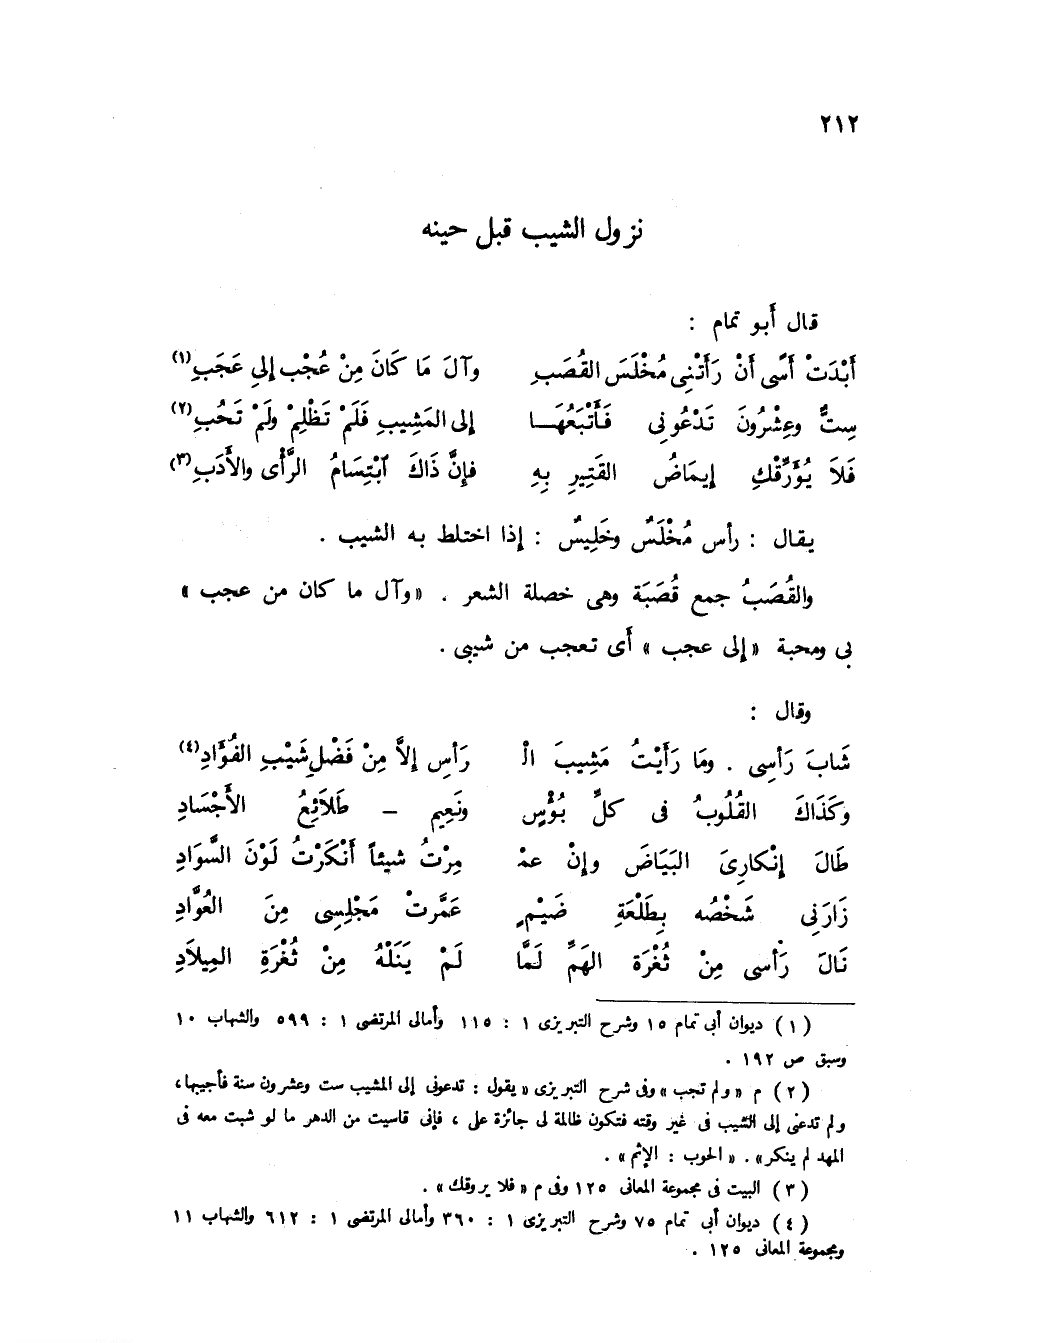 ٢١٢
نزول الشيب قبل حينه
قال أبو تمام :
أَبْدَتْ أَسًى أَنْ رَأَتْنِى مُخْلَسَ القُصَبِ وآلَ مَا كَانَ مِنْ عُجْب إلىِ عَجَبِ(١)
سِتٌّ وعِشْرُونَ تَدْعُونِى فَأَتْبَعُهَـــا إلى المَشِيبِ فَلَمْ تَظْلِمْ ولَمْ تَحُبِ(٢)
فَلاَ يُؤَرِّقْكِ إيمَاضُ القَتِيرِ بِهِ فإنَّ ذَاكَ ٱبْتِسَامُ الرَّأْى والأَدَبِ(٣)
يقال : رأس مُخْلَسٌ وخَلِيسٌ : إذا اختلط به الشيب .
والقُصَبُ جمع قُصَبَة وهى خصلة الشعر . « وآل ما كان من عجب »
بى ومحبة « إلى عجب » أى تعجب من شيبى .
وقال :
شَابَ رَأْسِى . ومَا رَأَيْتُ مَشِيبَ الْ رَأسِ إلاَّ مِنْ فَضْلِ شَيْبِ الفُؤَادِ(٤)
وكَذَاكَ القُلُوبُ فى كلِّ بُؤْسٍ ونَعِيمٍ – طَلاَئِعُ الأَجْسَادِ
طَالَ إنْكارِىَ البَيَاضَ وإنْ عمْ مِرْتُ شيئاً أَنْكَرْتُ لَوْنَ السَّوَادِ
زَارَنِى شَخْصُه بِطَلْعَةِ ضَيْمٍ عَمَّرتْ مَجْلِسِى مِنَ العُوَّادِ
نَالَ رَأْسى مِنْ ثُغْرَة الهَمِّ لَمَّا لَمْ يَنَلْهُ مِنْ ثُغْرَةِ المِيلاَدِ
( ١ ) ديوان أبى تمام ١٥ وشرح التبريزى ١ : ١١٥ وأمالى المرتضى ١ : ٥٩٩ والشهاب ١٠
وسبق ص ١٩٢ .
( ٢ ) م « ولم تجب » وفى شرح التبريزى « يقول : تدعونى إلى المشيب ست وعشرون سنة فأجيبها ،
ولم تدعنى إلى الشيب فى غير وقته فتكون ظالمة لى جائزة على ، فإنى قاسيت من الدهر ما لو شبت معه فى
المهد لم ينكر » . « الحوب : الإثم » .
( ٣ ) البيت فى مجموعة المعانى ١٢٥ وفى م « فلا يروقك » .
( ٤ ) ديوان أبى تمام ٧٥ وشرح التبريزى ١ : ٣٦٠ وأمالى المرتضى ١ : ٦١٢ والشهاب ١١
ومجموعة المعانى ١٢٥ .